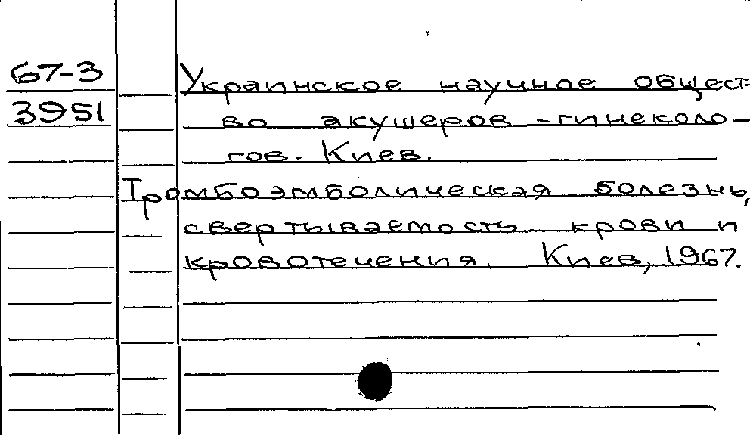 67-3
3951
Украинское научное общест-
во акушеров-гинеколо-
гов. Киев.
Тромбоэмболическая болезнь,
свертываемость крови и
кровотечения. Киев, 1967.